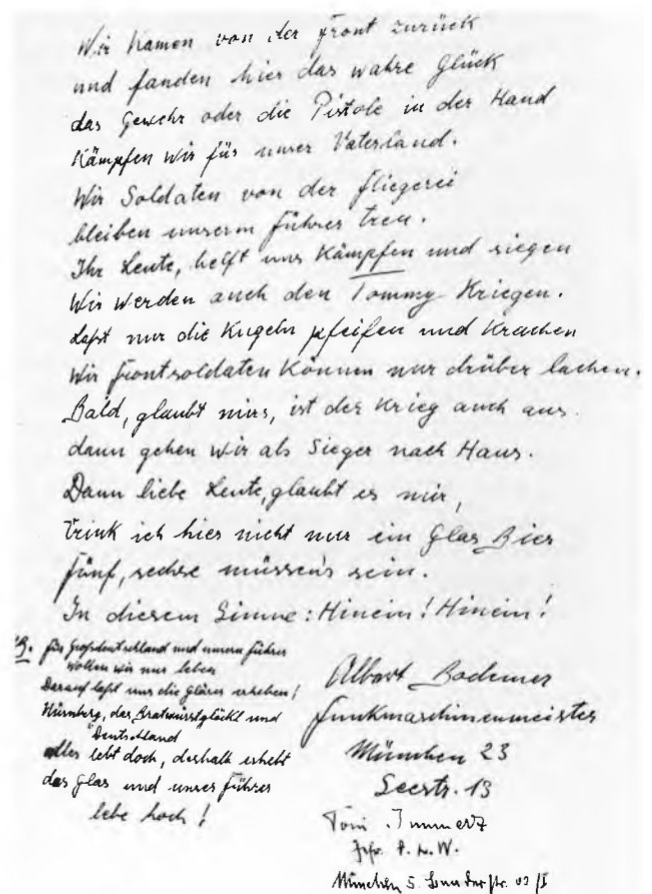 Wir kamen von der Front zurück
und fanden hier das wahre Glück
das Gewehr oder die Pistole in der Hand
Kämpfen wir für unser Vaterland.
Wir Soldaten von der Fliegerei
bleiben unserm Führer treu.
Ihr Leute, helft uns Kämpfen und siegen
Wir werden auch den Tommy Kriegen.
Laßt nur die Kugeln pfeifen und Krachen
Wir Frontsoldaten Können nur drüber lachen.
Bald, glaubt mirs, ist der Krieg auch aus.
dann gehen wir als Sieger nach Haus.
Dann liebe Leute, glaubt es mir,
trink ich hier nicht nur ein Glas Bier
Fünf, sechse müssen's sein.
In diesem Sinne: Hinein! Hinein!
Für Großdeutschland und unsern Führer
wollen wir nur leben
Darauf laßt uns die Gläser erheben!
Nürnberg, das Bratwurstglöckl und
Deutschland
alles lebt doch, deshalb erhebt
das Glas und unser Führer
lebe hoch!
Albert Bodemer
Funkmaschinenmeister
München 23
Seestr. 13
Toni Immerz
München 5.